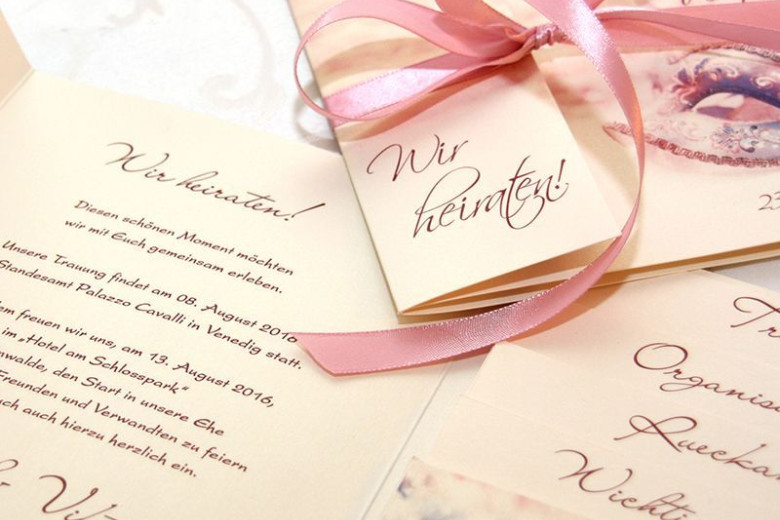 Wir heiraten!
Diesen schönen Moment möchten
wir mit Euch gemeinsam erleben.
Unsere Trauung findet am 08. August 2016
Standesamt Palazzo Cavalli in Venedig statt.
freuen wir uns, am 13. August 2016,
im „Hotel am Schlosspark“
den Start in unsere Ehe
Freunden und Verwandten zu feiern
auch hierzu herzlich ein.
&
Wir
heiraten!
23